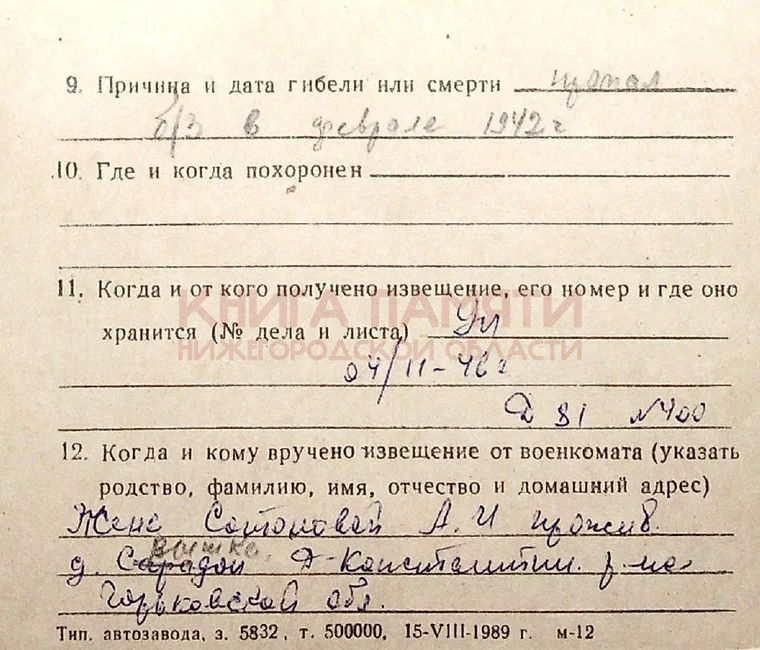 9. Причина и дата гибели или смерти пропал
б/з в феврале 1942 г
10. Где и когда похоронен
11. Когда и от кого получено извещение, его номер и где оно
КНИГА ПАМЯТИ
хранится (№ дела и листа)
НИЖЕГОРОДСКОЙ ОБЛАСТИ
04/11-46 г
Д 81 №400
12. Когда и кому вручено извещение от военкомата (указать
родство, фамилию, имя, отчество и домашний адрес)
Жене А. И прожив.
д. Д-Константин. р-на
Горьковской обл.
Тип. автозавода, з. 5832, т. 500000, 15-VIII-1989 г. м-12